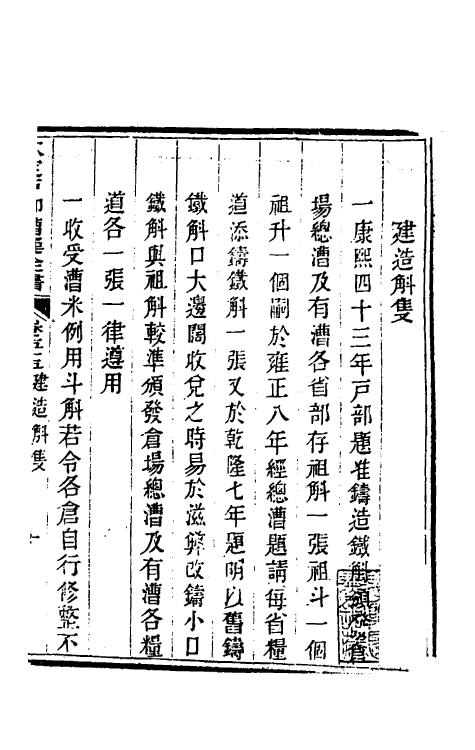 建造斛隻
一康熙四十三年戸部題准鑄造鐵斛頒發倉
場總漕及有漕各省部存祖斛一張祖斗一個
祖升一個嗣於雍正八年經總漕題請每省糧
道添鑄鐵斛一張又於乾隆七年題明以舊鑄
鐵斛口大邊闊收兌之時易於滋弊改鑄小口
鐵斛與祖斛較準頒發倉場總漕及有漕各糧
道各一張一律遵用
一收受漕米例用斗斛若令各倉自行修整不
卷五十五建造斛隻